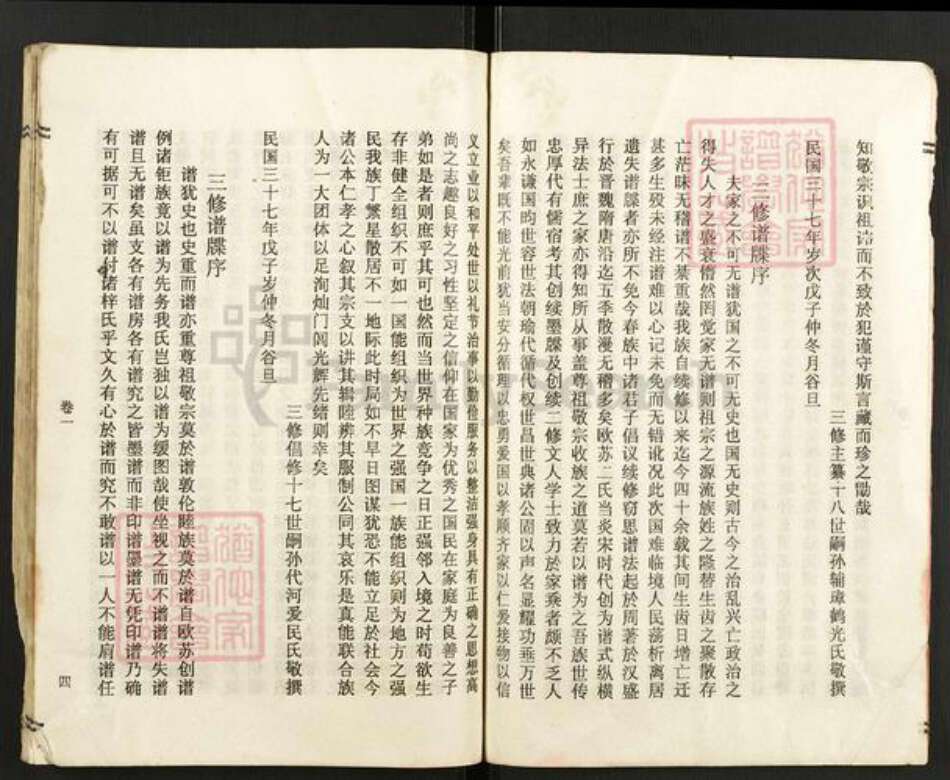 知敬宗识祖诰而不致於犯谨守斯言藏而珍之勖哉
三修主纂十八世嗣孙辅璋鹤光氏敬撰
民国三十七年岁次戊子仲冬月谷旦
三修谱牒序
夫家之不可无谱犹国之不可无史也国无史则古今之治乱兴亡政治之
得失人才之盛衰懵然罔觉家无谱则祖宗之源流族姓之隆替生齿之聚散存
亡茫昧无稽谱不禁重哉我族自续修以来迄今四十余载其间生齿日增亡迁
甚多生殁未经注谱难以心记未免而无错讹况此次国难临境人民荡析离居
遗失谱牒者亦所不免今春族中诸君子倡议续修窃思谱法起於周著於汉盛
行於晋魏隋唐沿迄五季散漫无稽多矣欧苏二氏当炎宋时代创为谱式纵横
异法士庶之家亦得知所从事盖尊祖敬宗收族之道莫若以谱为之吾族世传
忠厚代有儒宿考其创续墨牒及创续二修文人学士致力於家乘者颇不乏人
如永谦国昀世容世法朝瑜代循代权世昌世典诸公固以声名显耀功垂万世
矣吾辈既不能光前犹当安分循理以忠勇爱国以孝顺齐家以仁爱接物以信
义立业以和平处世以礼节治事以勤俭服务以整洁强身具有正确之思想高
尚之志趣良好之习性坚定之信仰在国家为优秀之国民在家庭为良善之子
弟如是者则庶乎其可也然而当世界种族竞争之日正强邻入境之时苟欲生
存非健全组织不可如一国能组织为世界之强国一族能组织则为地方之强
民我族丁繁星散居不一地际此时局如不早日图谋犹恐不能立足於社会今
诸公本仁孝之心叙其宗支以讲其辑睦辨其服制公同其哀乐是真能联合族
人为一大团体以足洵灿门闾光辉先绪则幸矣
三修倡修十七世嗣孙代河爱民氏敬撰
民国三十七年戊子岁仲冬月谷旦
三修谱牒序
谱犹史也史重而谱亦重尊祖敬宗莫於谱敦伦睦族莫於谱自欧苏创谱
例诸钜族竟以谱为先务我氏岂独以谱为缓图哉使坐视之而不谱谱将失谱
谱且无谱矣虽支各有谱房各有谱究之皆墨谱而非印谱墨谱无凭印谱乃确
有可据可不以谱付诸梓氏乎文久有心於谱而究不敢谱以一人不能肩谱任
卷一
四